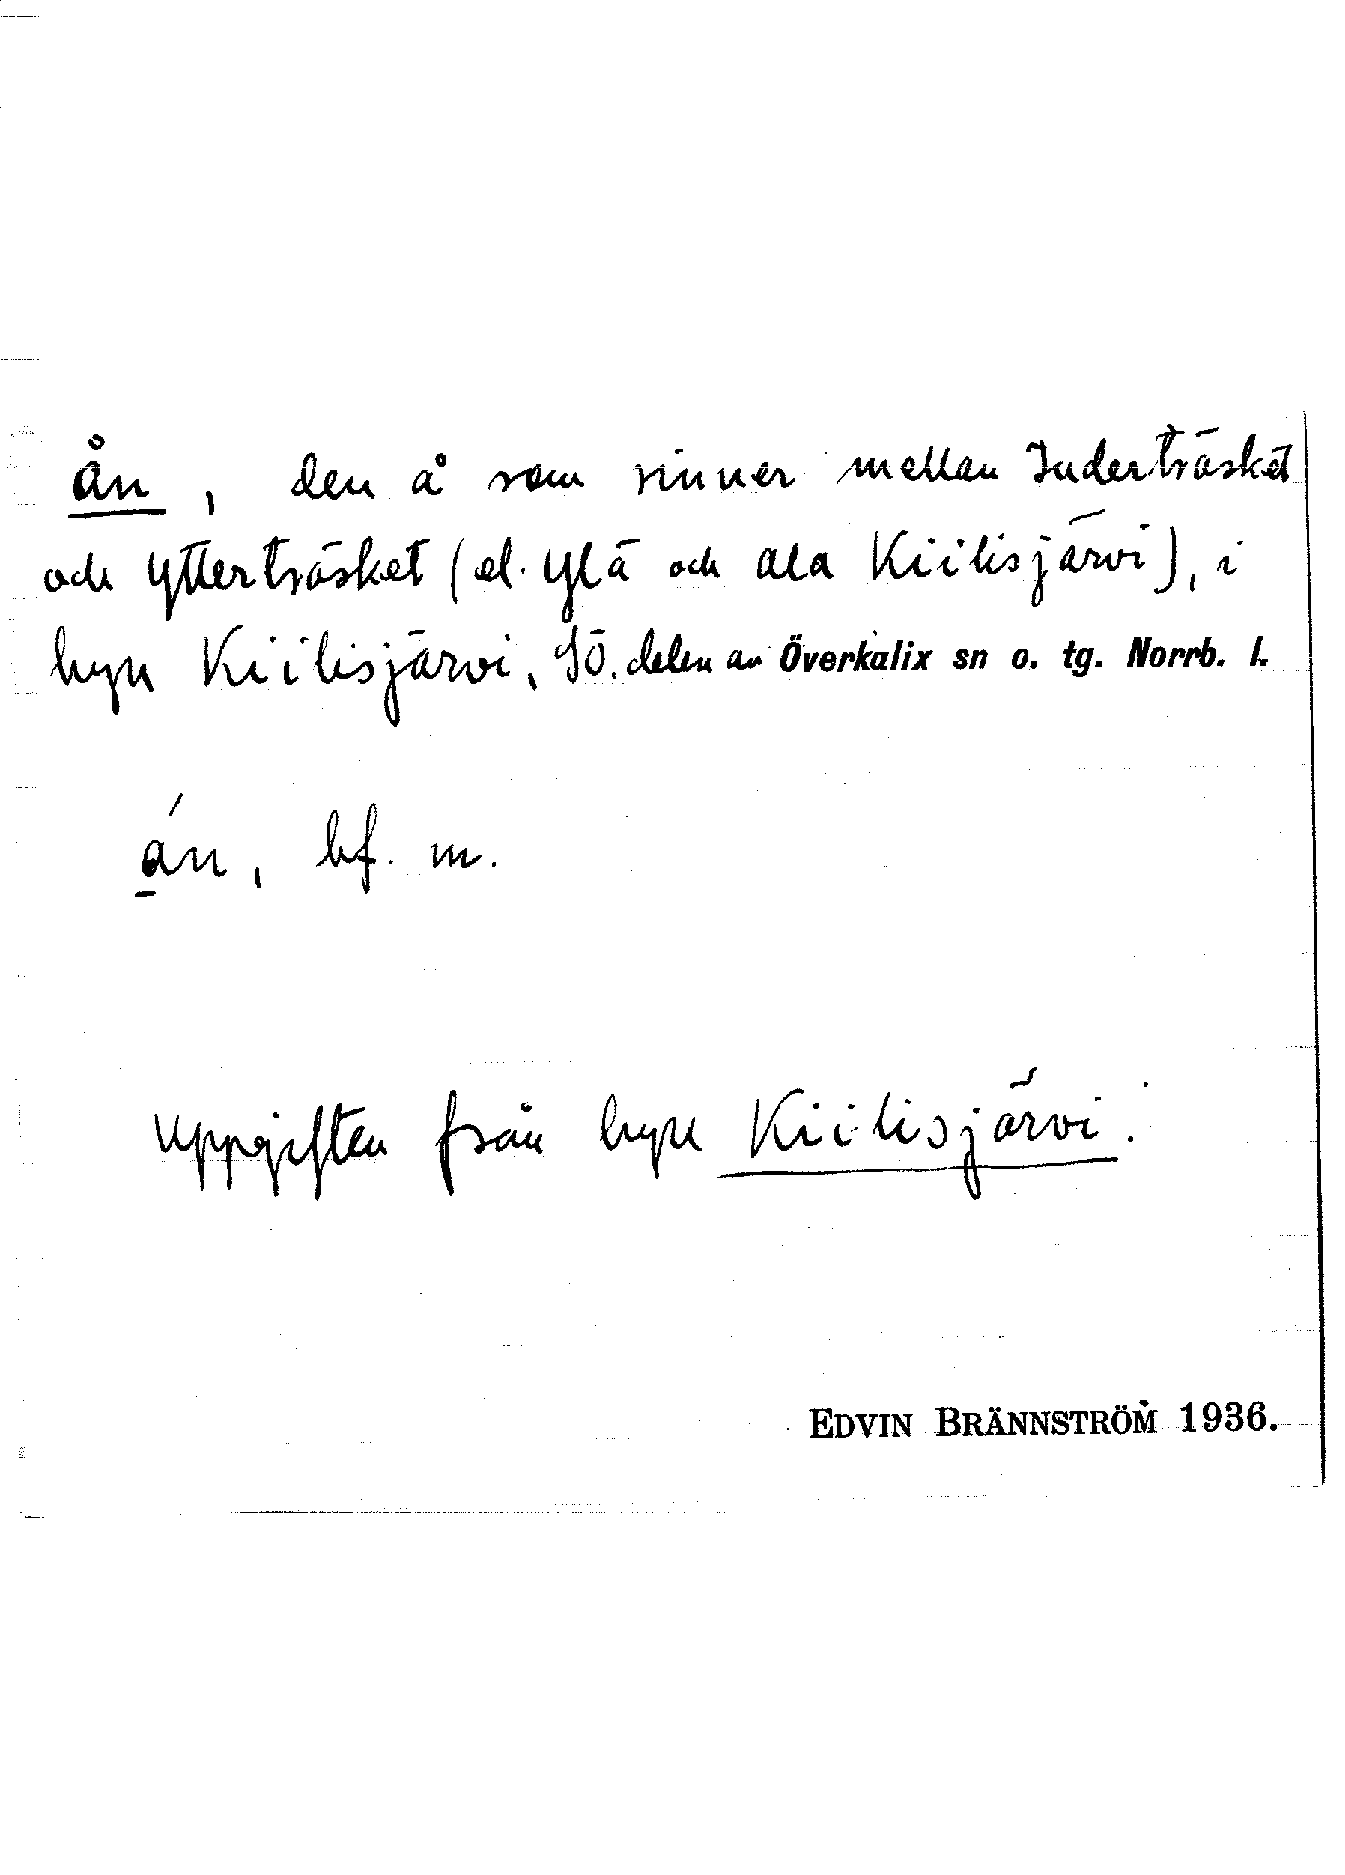 ån, den å som rinner mellan Inderträsket
och Ytterträsket (el. Ylä och Ala Kiilisjärvi), i
byn Kiilisjärvi, SÖ. delen av Överkalix sn o. tg. Norrb. l.
án, bf. m.
Uppgiften från byn Kiilisjärvi.
EDVIN BRÄNNSTRÖM 1936.